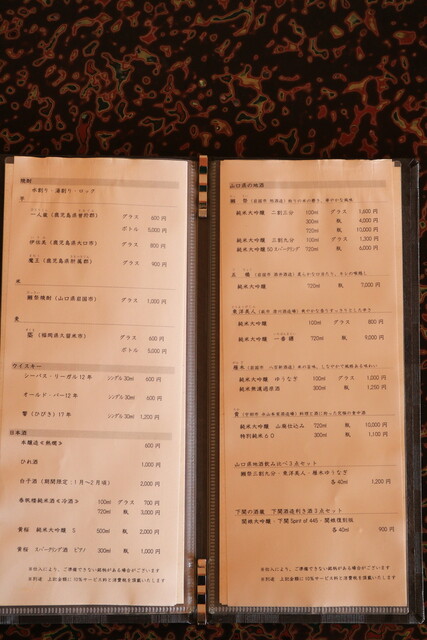 焼酎
水割り・湯割り・ロック
芋
一人蔵（鹿児島県曽於郡） グラス 600 円
ボトル 5,000 円
伊佐美（鹿児島県大口市） グラス 800 円
魔王（鹿児島県肝属郡） グラス 900 円
米
獺祭焼酎（山口県岩国市） グラス 1,000 円
麦
（福岡県久留米市） グラス 600 円
ボトル 5,000 円
ウイスキー
シーバス・リーガル 12 年 シングル 30ml 600 円
オールド・パー12 年 シングル 30ml 600 円
響（ひびき）17 年 シングル 30ml 1,200 円
日本酒
本醸造≪熱燗≫ 600 円
ひれ酒 1,000 円
白子酒（期間限定：1月～2月頃） 2,000 円
春帆楼純米酒≪冷酒≫ 100ml グラス 700 円
720ml 瓶 3,000 円
貴 純米大吟醸 S 500ml 瓶 2,000 円
スパークリング酒 ピアノ 300ml 瓶 1,000 円
※仕入により、ご準備できない銘柄がある場合がございます
※別途 上記金額に 10%サービス料と消費税を頂戴いたします
山口県の地酒
獺 祭
純米大吟醸 二割三分 100ml グラス 1,600 円
300ml 瓶 4,000 円
720ml 瓶 10,000 円
純米大吟醸 三割九分 100ml グラス 1,300 円
純米大吟醸 50 スパークリング 720ml 瓶 6,000 円
五 橋
純米大吟醸 720ml 瓶 7,000 円
東洋美人
純米大吟醸 100ml グラス 800 円
純米大吟醸 一番纏 720ml 瓶 9,000 円
雁木
純米大吟醸 ゆうなぎ 100ml グラス 1,000 円
純米無濾過原酒 300ml 瓶 1,250 円
貴
純米大吟醸 山廃仕込み 720ml 瓶 10,000 円
特別純米60 300ml 瓶 1,100 円
山口県地酒飲み比べ3点セット
獺祭三割九分・東洋美人・雁木ゆうなぎ
各 40ml 1,200 円
下関の酒蔵 下関酒造利き酒3点セット
関娘大吟醸・下関 Spirit of 445・関娘復刻版
各 40ml 900 円
※仕入により、ご準備できない銘柄がある場合がございます
※別途 上記金額に 10%サービス料と消費税を頂戴いたします